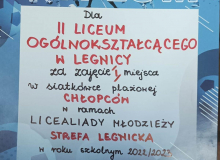 Dla
II LICEUM
OGÓLNOKSZTAŁCĄCEGO
W LEGNICY
za zajęcie 1 miejsca
w siatkówce plażowej
CHŁOPCÓW
w ramach
LICEALIADY MŁODZIEŻY
STREFA LEGNICKA
w roku szkolnym 2022/2023